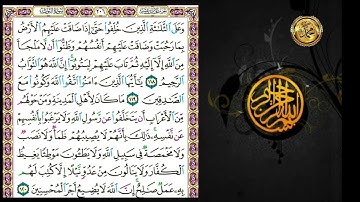 وَعَلَى الثَّلَاثَةِ الَّذِينَ خُلِّفُوا حَتَّىٰ إِذَا ضَاقَتْ عَلَيْهِمُ الْأَرْضُ
بِمَا رَحُبَتْ وَضَاقَتْ عَلَيْهِمْ أَنفُسُهُمْ وَظَنُّوا أَن لَّا مَلْجَأَ
مِنَ اللَّهِ إِلَّا إِلَيْهِ ثُمَّ تَابَ عَلَيْهِمْ لِيَتُوبُوا إِنَّ اللَّهَ هُوَ التَّوَّابُ
الرَّحِيمُ ١١٨ يَا أَيُّهَا الَّذِينَ آمَنُوا اتَّقُوا اللَّهَ وَكُونُوا مَعَ
الصَّادِقِينَ ١١٩ مَا كَانَ لِأَهْلِ الْمَدِينَةِ وَمَنْ حَوْلَهُم
مِّنَ الْأَعْرَابِ أَن يَتَخَلَّفُوا عَن رَّسُولِ اللَّهِ وَلَا يَرْغَبُوا بِأَنفُسِهِمْ
عَن نَّفْسِهِ ذَٰلِكَ بِأَنَّهُمْ لَا يُصِيبُهُمْ ظَمَأٌ وَلَا نَصَبٌ
وَلَا مَخْمَصَةٌ فِي سَبِيلِ اللَّهِ وَلَا يَطَئُونَ مَوْطِئًا يَغِيظُ
الْكُفَّارَ وَلَا يَنَالُونَ مِنْ عَدُوٍّ نَّيْلًا إِلَّا كُتِبَ لَهُم
بِهِ عَمَلٌ صَالِحٌ إِنَّ اللَّهَ لَا يُضِيعُ أَجْرَ الْمُحْسِنِينَ ١٢٠
بسم الله الرحمن الرحيم